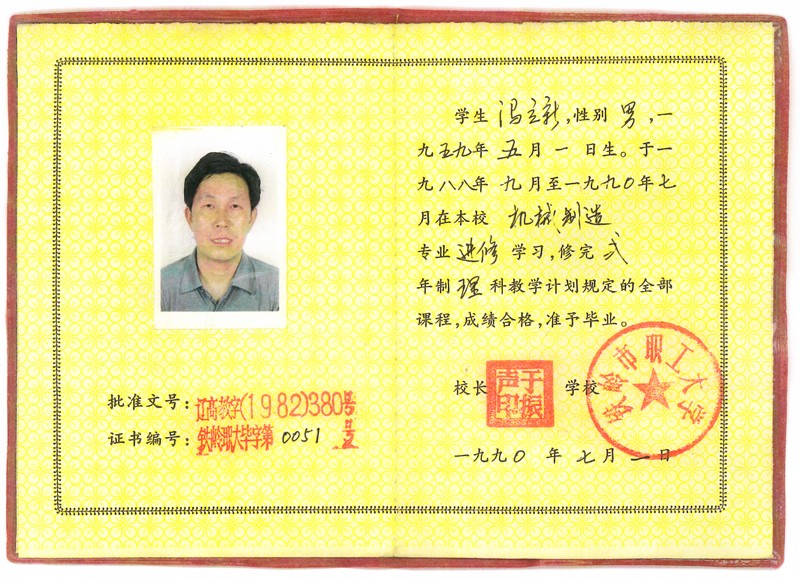 学生 冯立新,性别 男,一
九五九年 五 月 一 日生。于一
九八八年 九 月至一九九〇年七
月在本校 机械制造
专业 进修 学习,修完 弍
年制 理 科教学计划规定的全部
课程,成绩合格,准予毕业。
批准文号:辽高教字(1982)380号
证书编号:铁岭职大毕字第 0051 号
校长 于振声印 学校
铁岭市职工大学
一九九〇 年 七 月 二 日